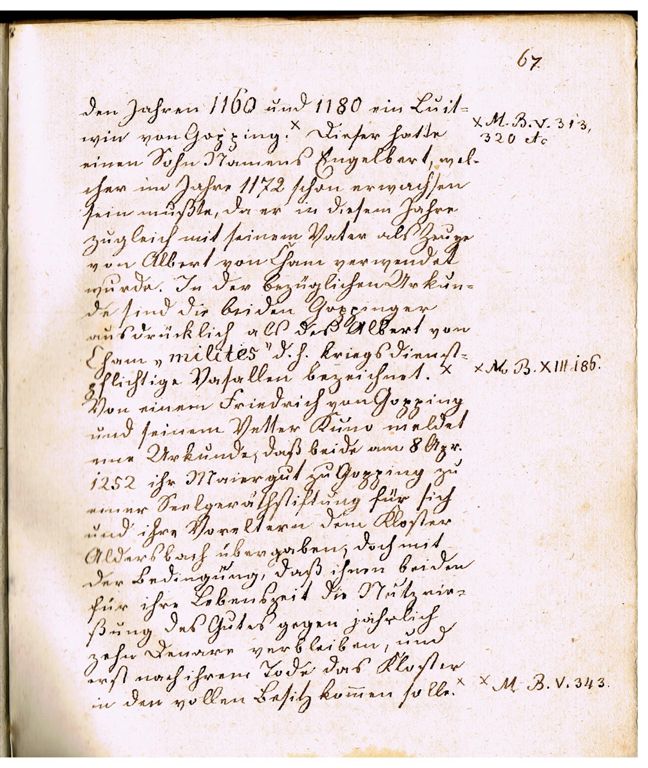 67.
den Jahren 1160 und 1180 ein Luit-
win von Gopping.× Dieser hatte
× M. B. V. 313,
320 etc
einen Sohn Namens Engelbert, wel-
cher im Jahre 1172 schon erwachsen
sein mußte, da er in diesem Jahre
zugleich mit seinem Vater als Zeuge
von Albert von Cham verwendet
wurde. In der bezüglichen Urkun-
de sind die beiden Goppinger
ausdrücklich als des Albert von
Cham „milites" d. h. kriegsdienst-
pflichtige Vasallen bezeichnet. ×
× M. B. XIII. 186.
Von einem Friedrich von Gopping
und seinem Vetter Kuno meldet
eine Urkunde, daß beide am 8 Apr.
1252 ihr Maiergut zu Gopping zu
einer Seelgeräthstiftung für sich
und ihre Voreltern dem Kloster
Aldersbach übergaben, doch mit
der Bedingung, daß ihnen beiden
für ihre Lebenszeit die Nutznie-
ßung des Gutes gegen jährlich
zehn Denare verbleiben, und
erst nach ihrem Tode das Kloster
in den vollen Besitz kommen solle.×
× M. B. V. 343.